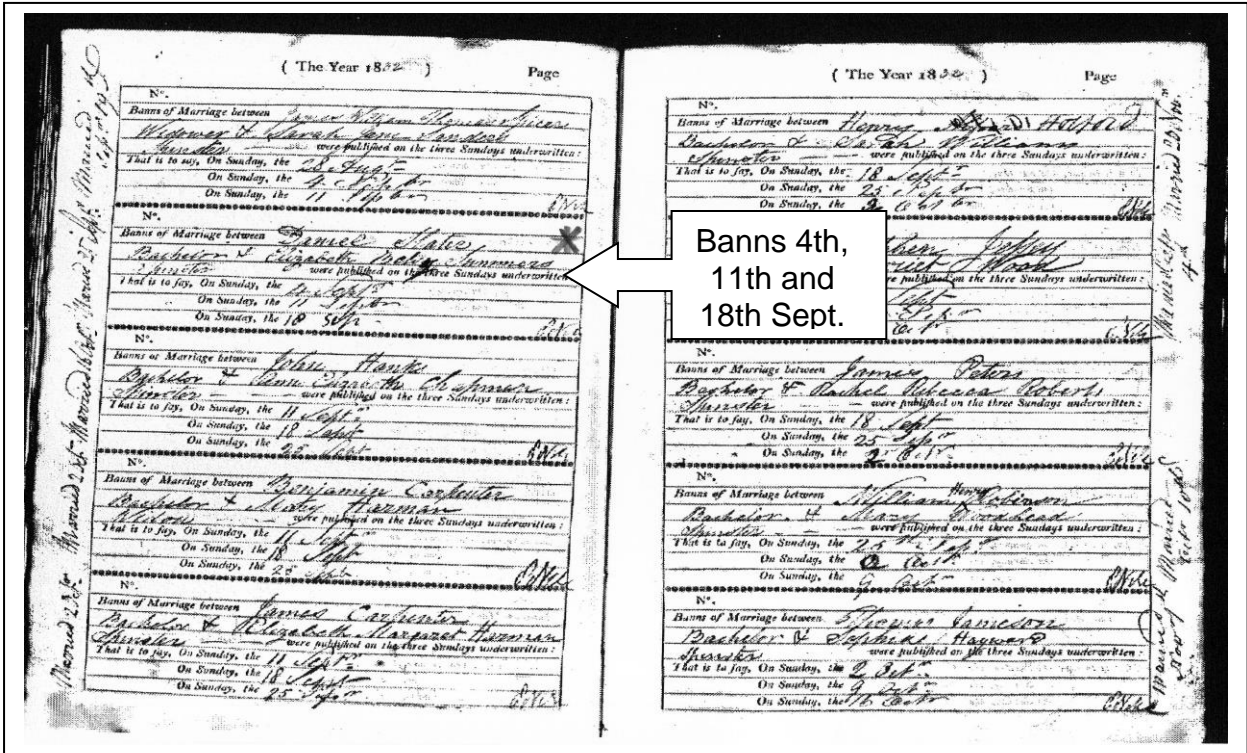 ( The Year 1832 ) Page
No.
Banns of Marriage between James William Thomas Spicer
Widower & Sarah Jane
Spinster were published on the three Sundays underwritten:
That is to say, On Sunday, the 28 Augt
On Sunday, the 4 Septbr
On Sunday, the 11 Septbr
No.
Banns of Marriage between Daniel
Bachelor & Elizabeth Summers
Spinster were published on the three Sundays underwritten
That is to say, On Sunday, the 4 Septr
On Sunday, the 11 Septbr
On Sunday, the 18 Sep
No.
Banns of Marriage between John Hanks
Bachelor & Ann Elizabeth Chapman
Spinster were published on the three Sundays underwritten:
That is to say, On Sunday, the 11 Septr
On Sunday, the 18 Sept
On Sunday, the 25 Sept
No.
Banns of Marriage between Benjamin Carpenter
Bachelor & Mary Harman
were published on the three Sundays underwritten:
That is to say, On Sunday, the 11 Sept
On Sunday, the 18 Sept
On Sunday, the 25 Sepr
No.
Banns of Marriage between James Carpenter
Bachelor & Elizabeth Margaret Harman
Spinster were published on the three Sundays underwritten:
That is to say, On Sunday, the 11 Septr
On Sunday, the 18 Sept
On Sunday, the 25 Sepr
Married 2 Octr Married 2 Oct Married Married 25 Sept Married
Banns 4th,
11th and
18th Sept.
( The Year 1832 ) Page
No.
Banns of Marriage between Henry Holford
Bachelor & Sarah Williams
Spinster were published on the three Sundays underwritten:
That is to say, On Sunday, the 18 Sept
On Sunday, the 25 Septr
On Sunday, the 2 Octbr
were published on the three Sundays underwritten:
Sept
Octr
No.
Banns of Marriage between James Peters
Bachelor & Rachel Rebecca Roberts
Spinster were published on the three Sundays underwritten:
That is to say, On Sunday, the 18 Sept
On Sunday, the 25 Sepr
On Sunday, the 2 Octr
No.
Banns of Marriage between William Henry Robinson
Bachelor & Mary Woodhead
Spinster were published on the three Sundays underwritten:
That is to say, On Sunday, the 25 Sepr
On Sunday, the 2 Oct
On Sunday, the 9 Octr
No.
Banns of Marriage between Thomas Jameson
Bachelor & Sophia Hayward
Spinster were published on the three Sundays underwritten:
That is to say, On Sunday, the 2 Octr
On Sunday, the 9 Octr
On Sunday, the 16 Octr
Married Novr Married Married 20 Novr